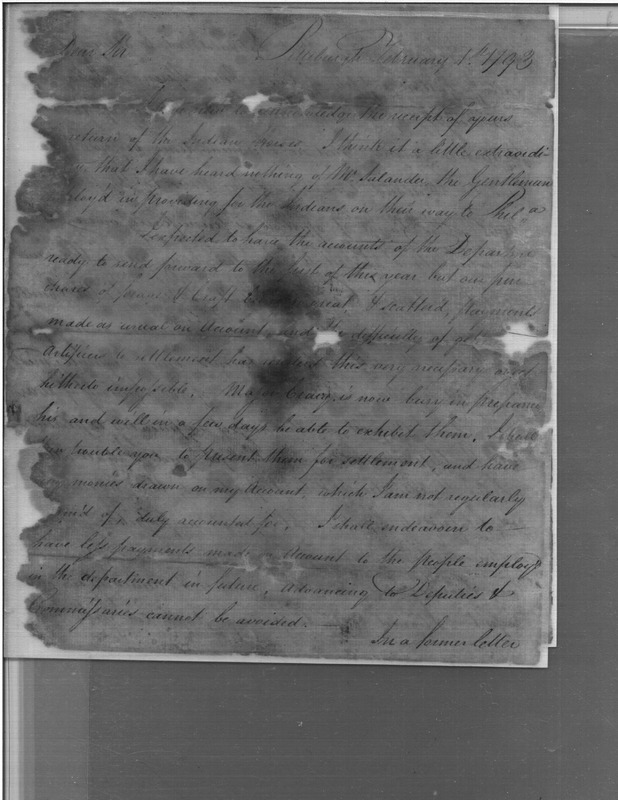 Dear Sir Pittsburgh February 1st 1793
to acknowledge the receipt of yours
return of the Indian Horses. I think it a little extraordi-
that I have heard nothing of Mr. the Gentleman
employ'd in providing for the Indians on their way to Phila
I expected to have the accounts of the Department
ready to send forward to the first of this year but our pur
chases of forage & Craft & scatter'd, payments
made as usual on Account, and the difficulty of
Artificers to settlement has rendered this very necessary
hitherto impossible. Major Craig is now busy in preparing
his and will in a few days be able to exhibit them. I shall
trouble you to present them for settlement, and have
monies drawn on my Account which I am not regularly
of, duly accounted for. I shall endeavour to
have less payments made on Account to the people employd
in the department in future, Advancing to Deputies &
Commissaries cannot be avoided.
In a former letter